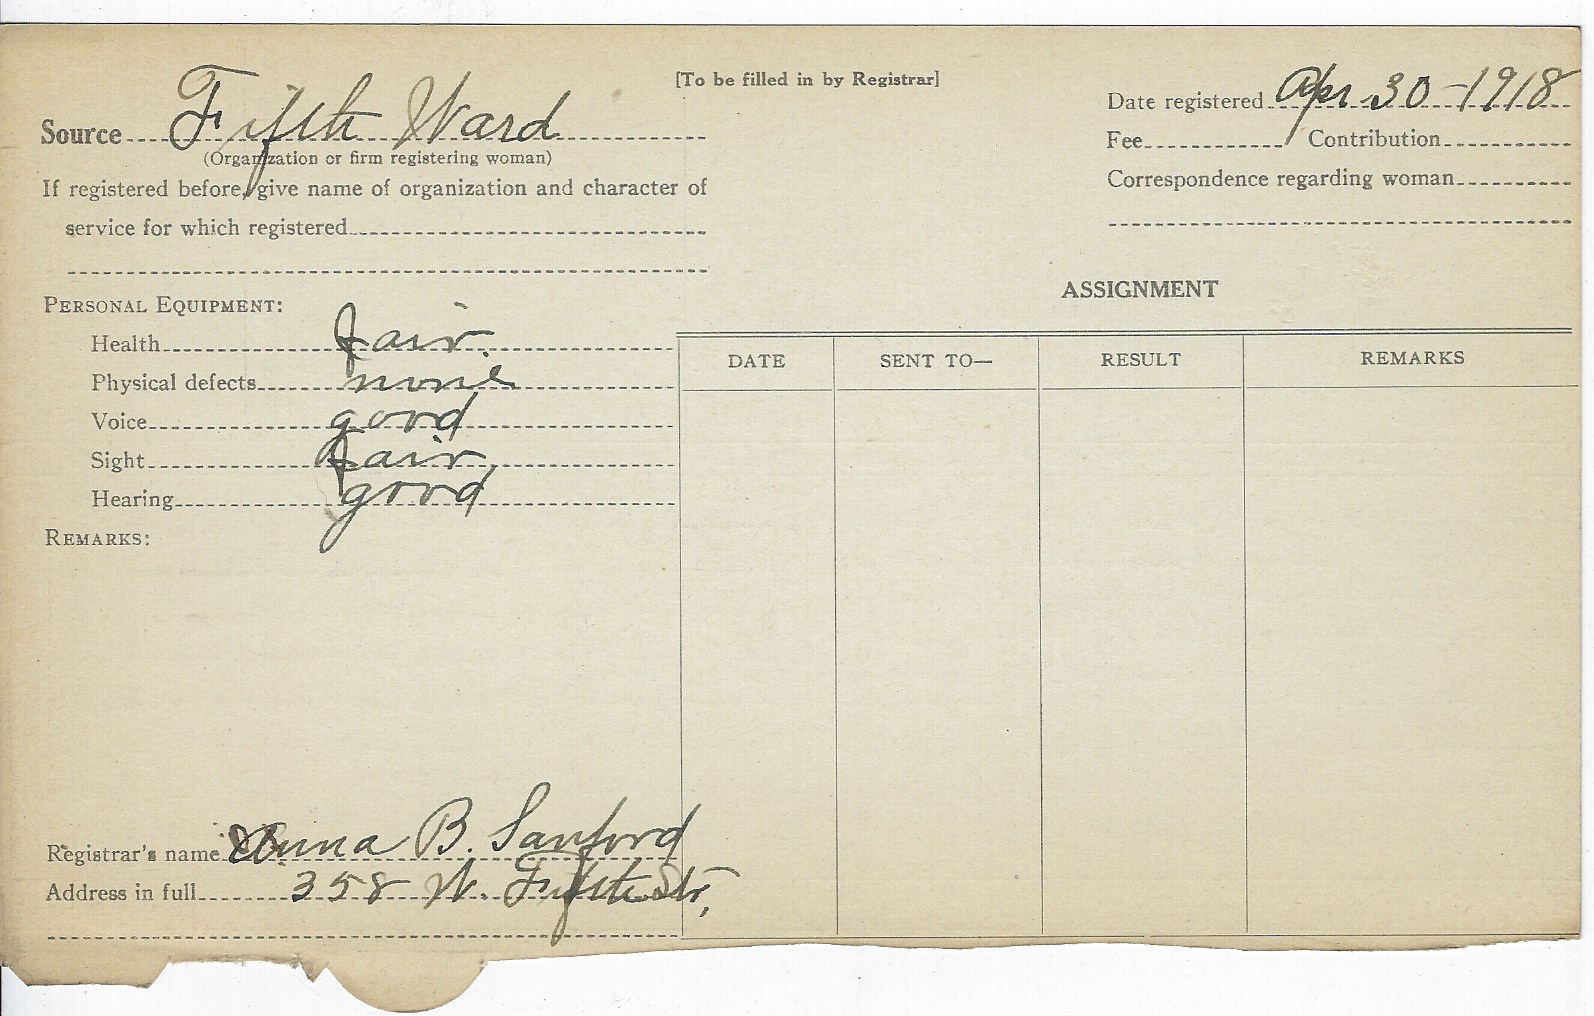 [To be filled in by Registrar]
Source Fifth Ward
(Organization or firm registering woman)
If registered before, give name of organization and character of
service for which registered
Date registered Apr 30-1918
Fee Contribution
Correspondence regarding woman
PERSONAL EQUIPMENT:
Health fair.
Physical defects none
Voice good
Sight fair
Hearing good
REMARKS:
Registrar's name Anna B. Sanford
Address in full 358 W. Fifth Str,
ASSIGNMENT
DATE SENT TO— RESULT REMARKS